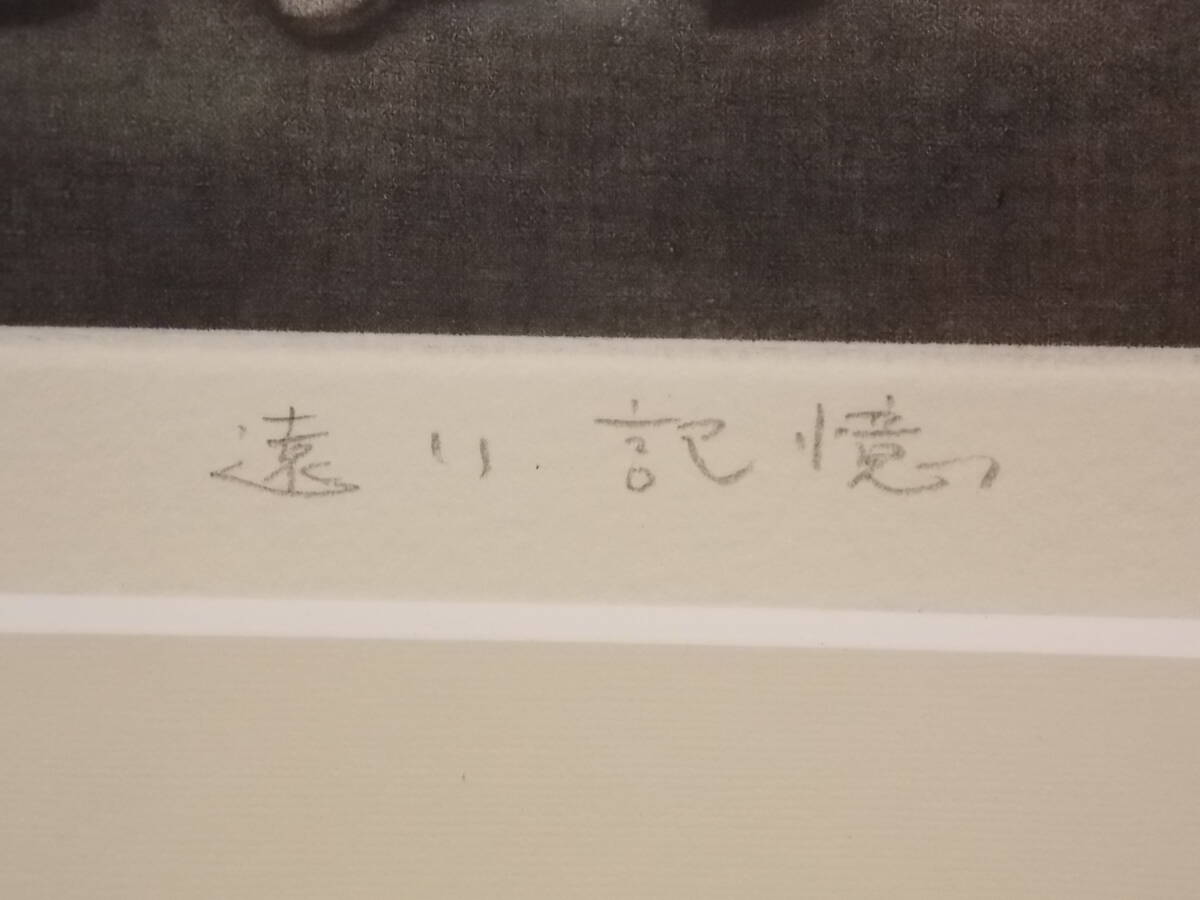 遠い記憶